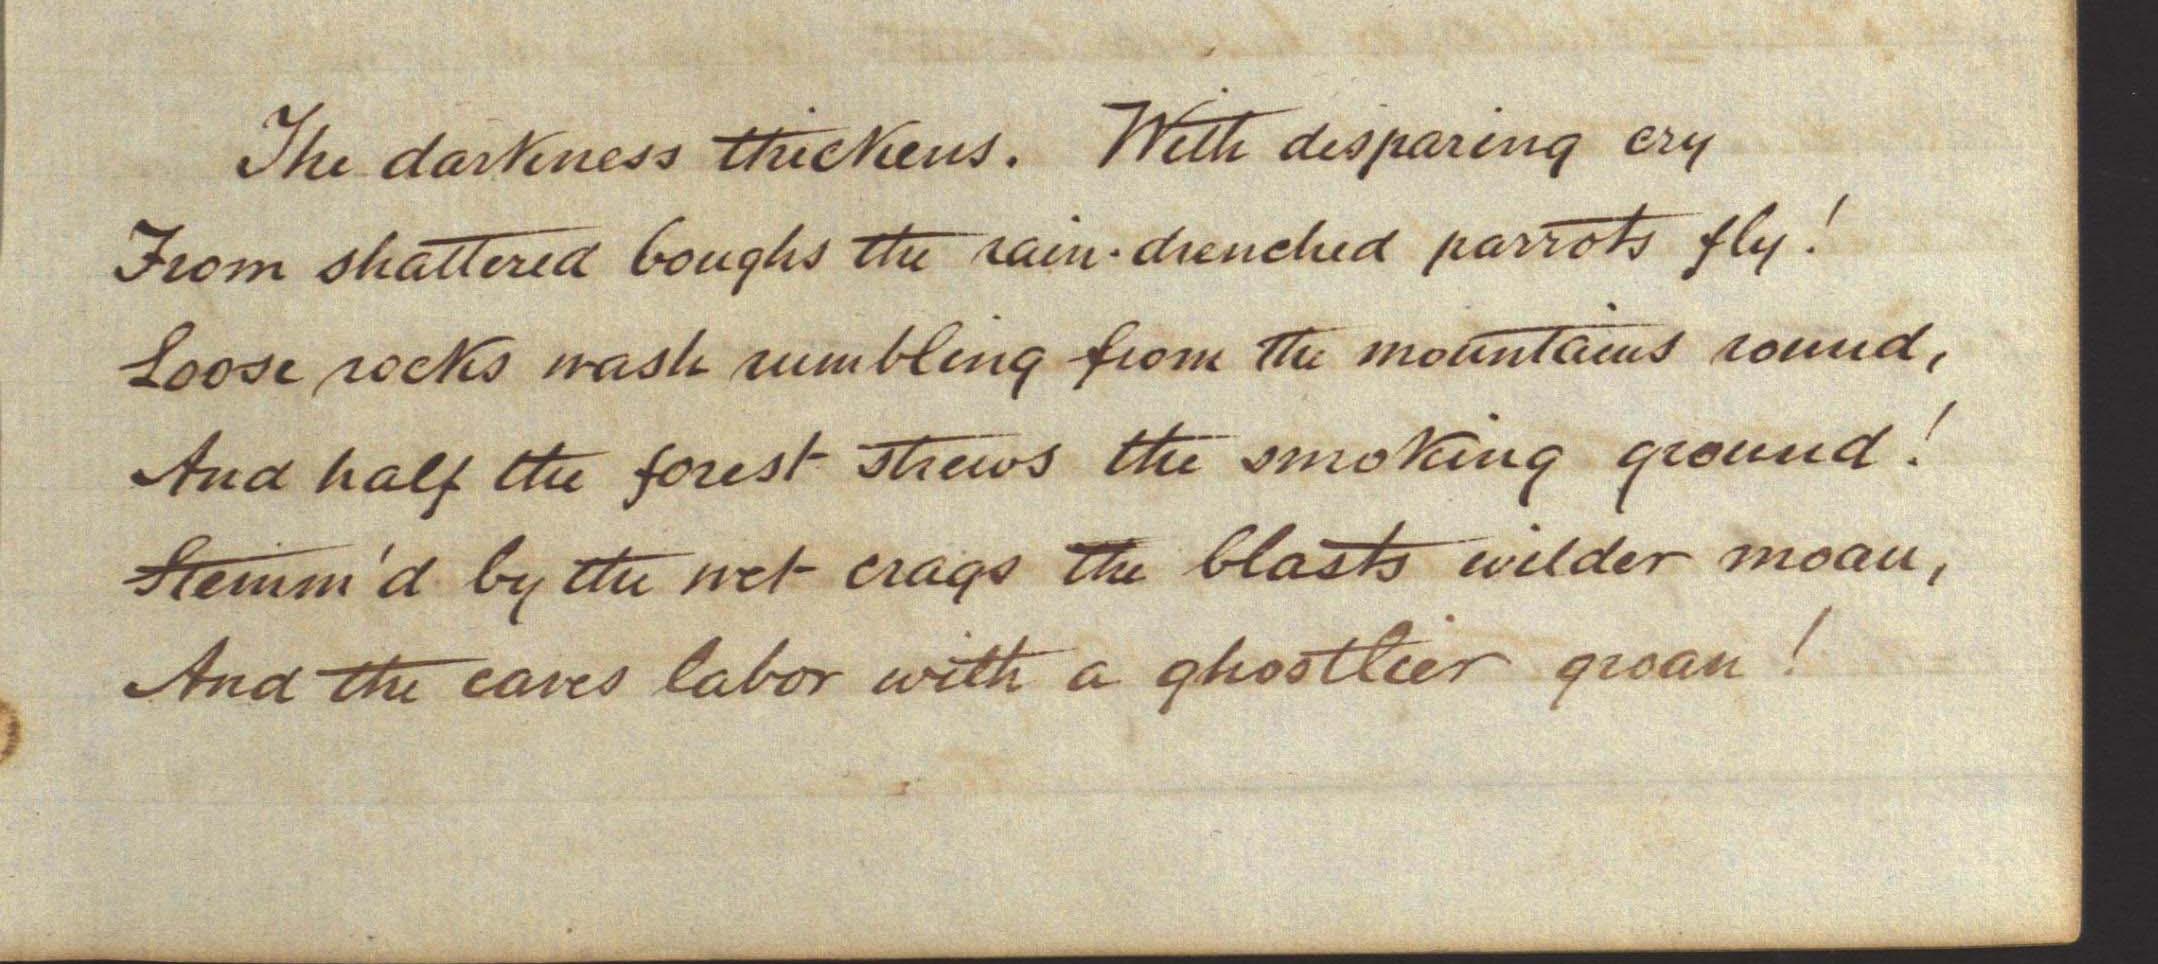 The darkness thickens. With disparing cry
From shattered boughs the rain-drenched parrots fly!
Loose rocks wash rumbling from the mountains round,
And half the forest strews the smoking ground!
Stemm'd by the wet crags the blasts wilder moan,
And the caves labor with a ghostlier groan!